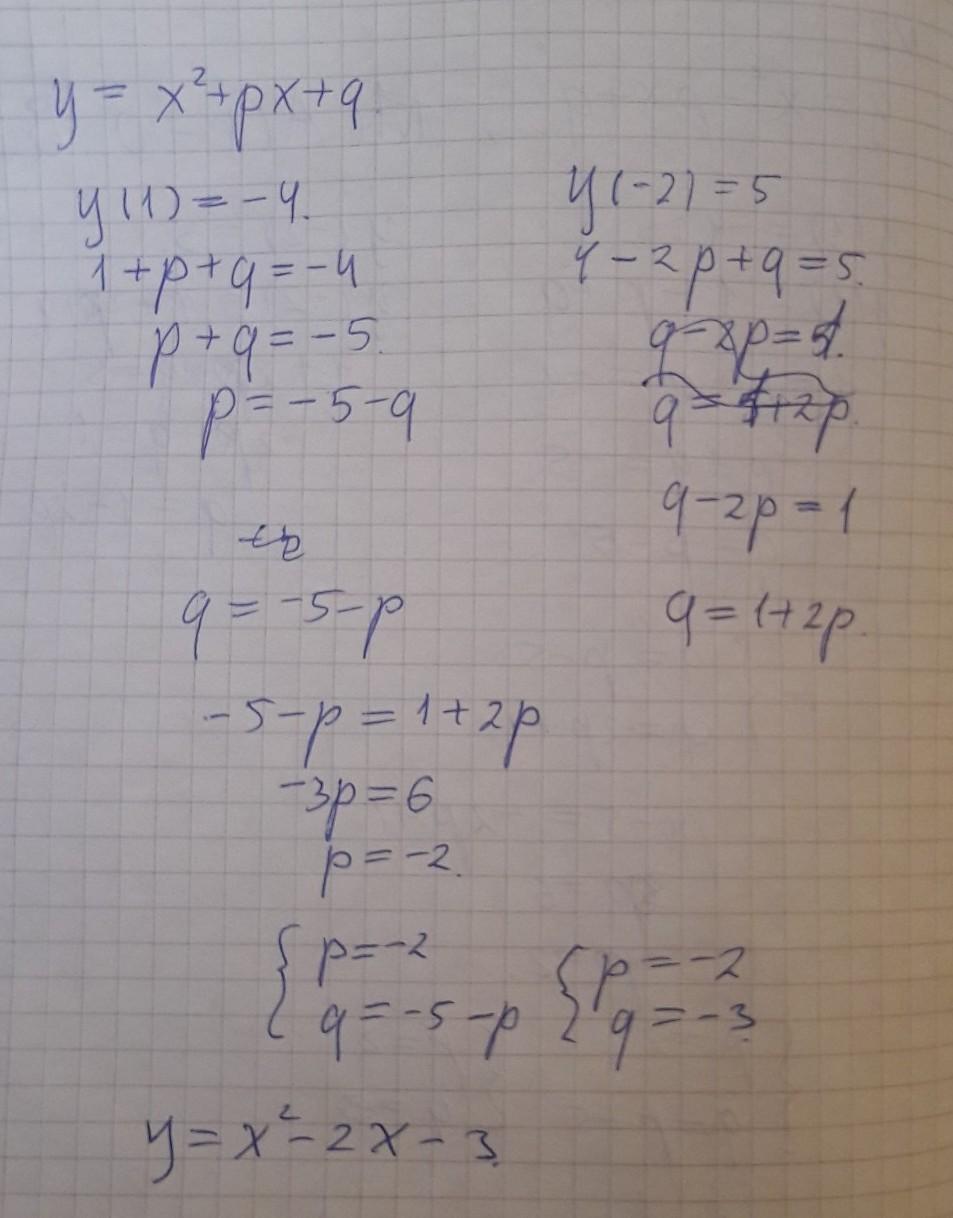 y = x²+px+q.
y(1)=-4.
1+p+q=-4
p+q=-5.
p=-5-q
y(-2)=5
4-2p+q=5.
q-2p=1
q=1+2p.
q=-5-p
-5-p=1+2p
-3p=6
p=-2.
{ p=-2 { p=-2
q=-5-p q=-3
y=x²-2x-3.